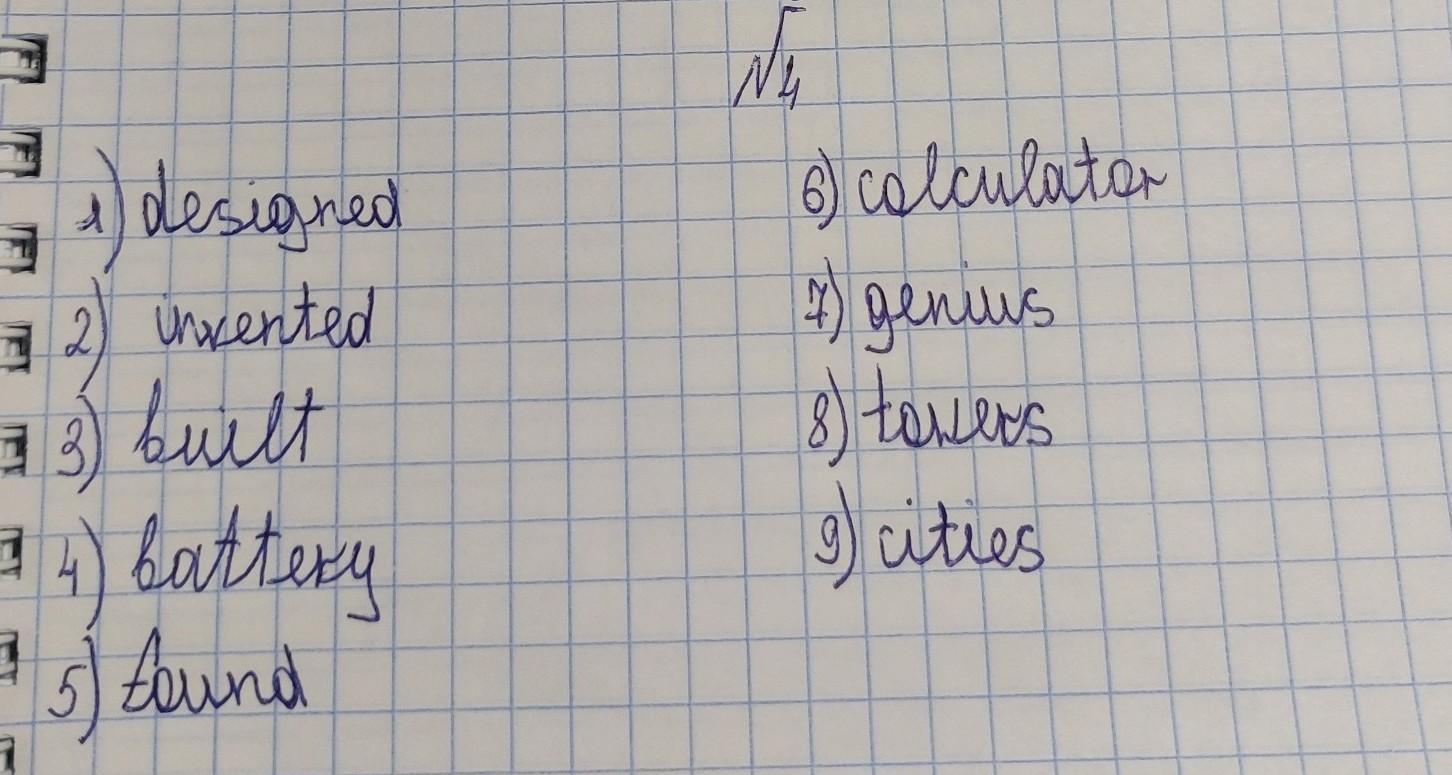 №4
1) designed
2) invented
3) built
4) battery
5) found
6) calculator
7) genius
8) towers
9) cities